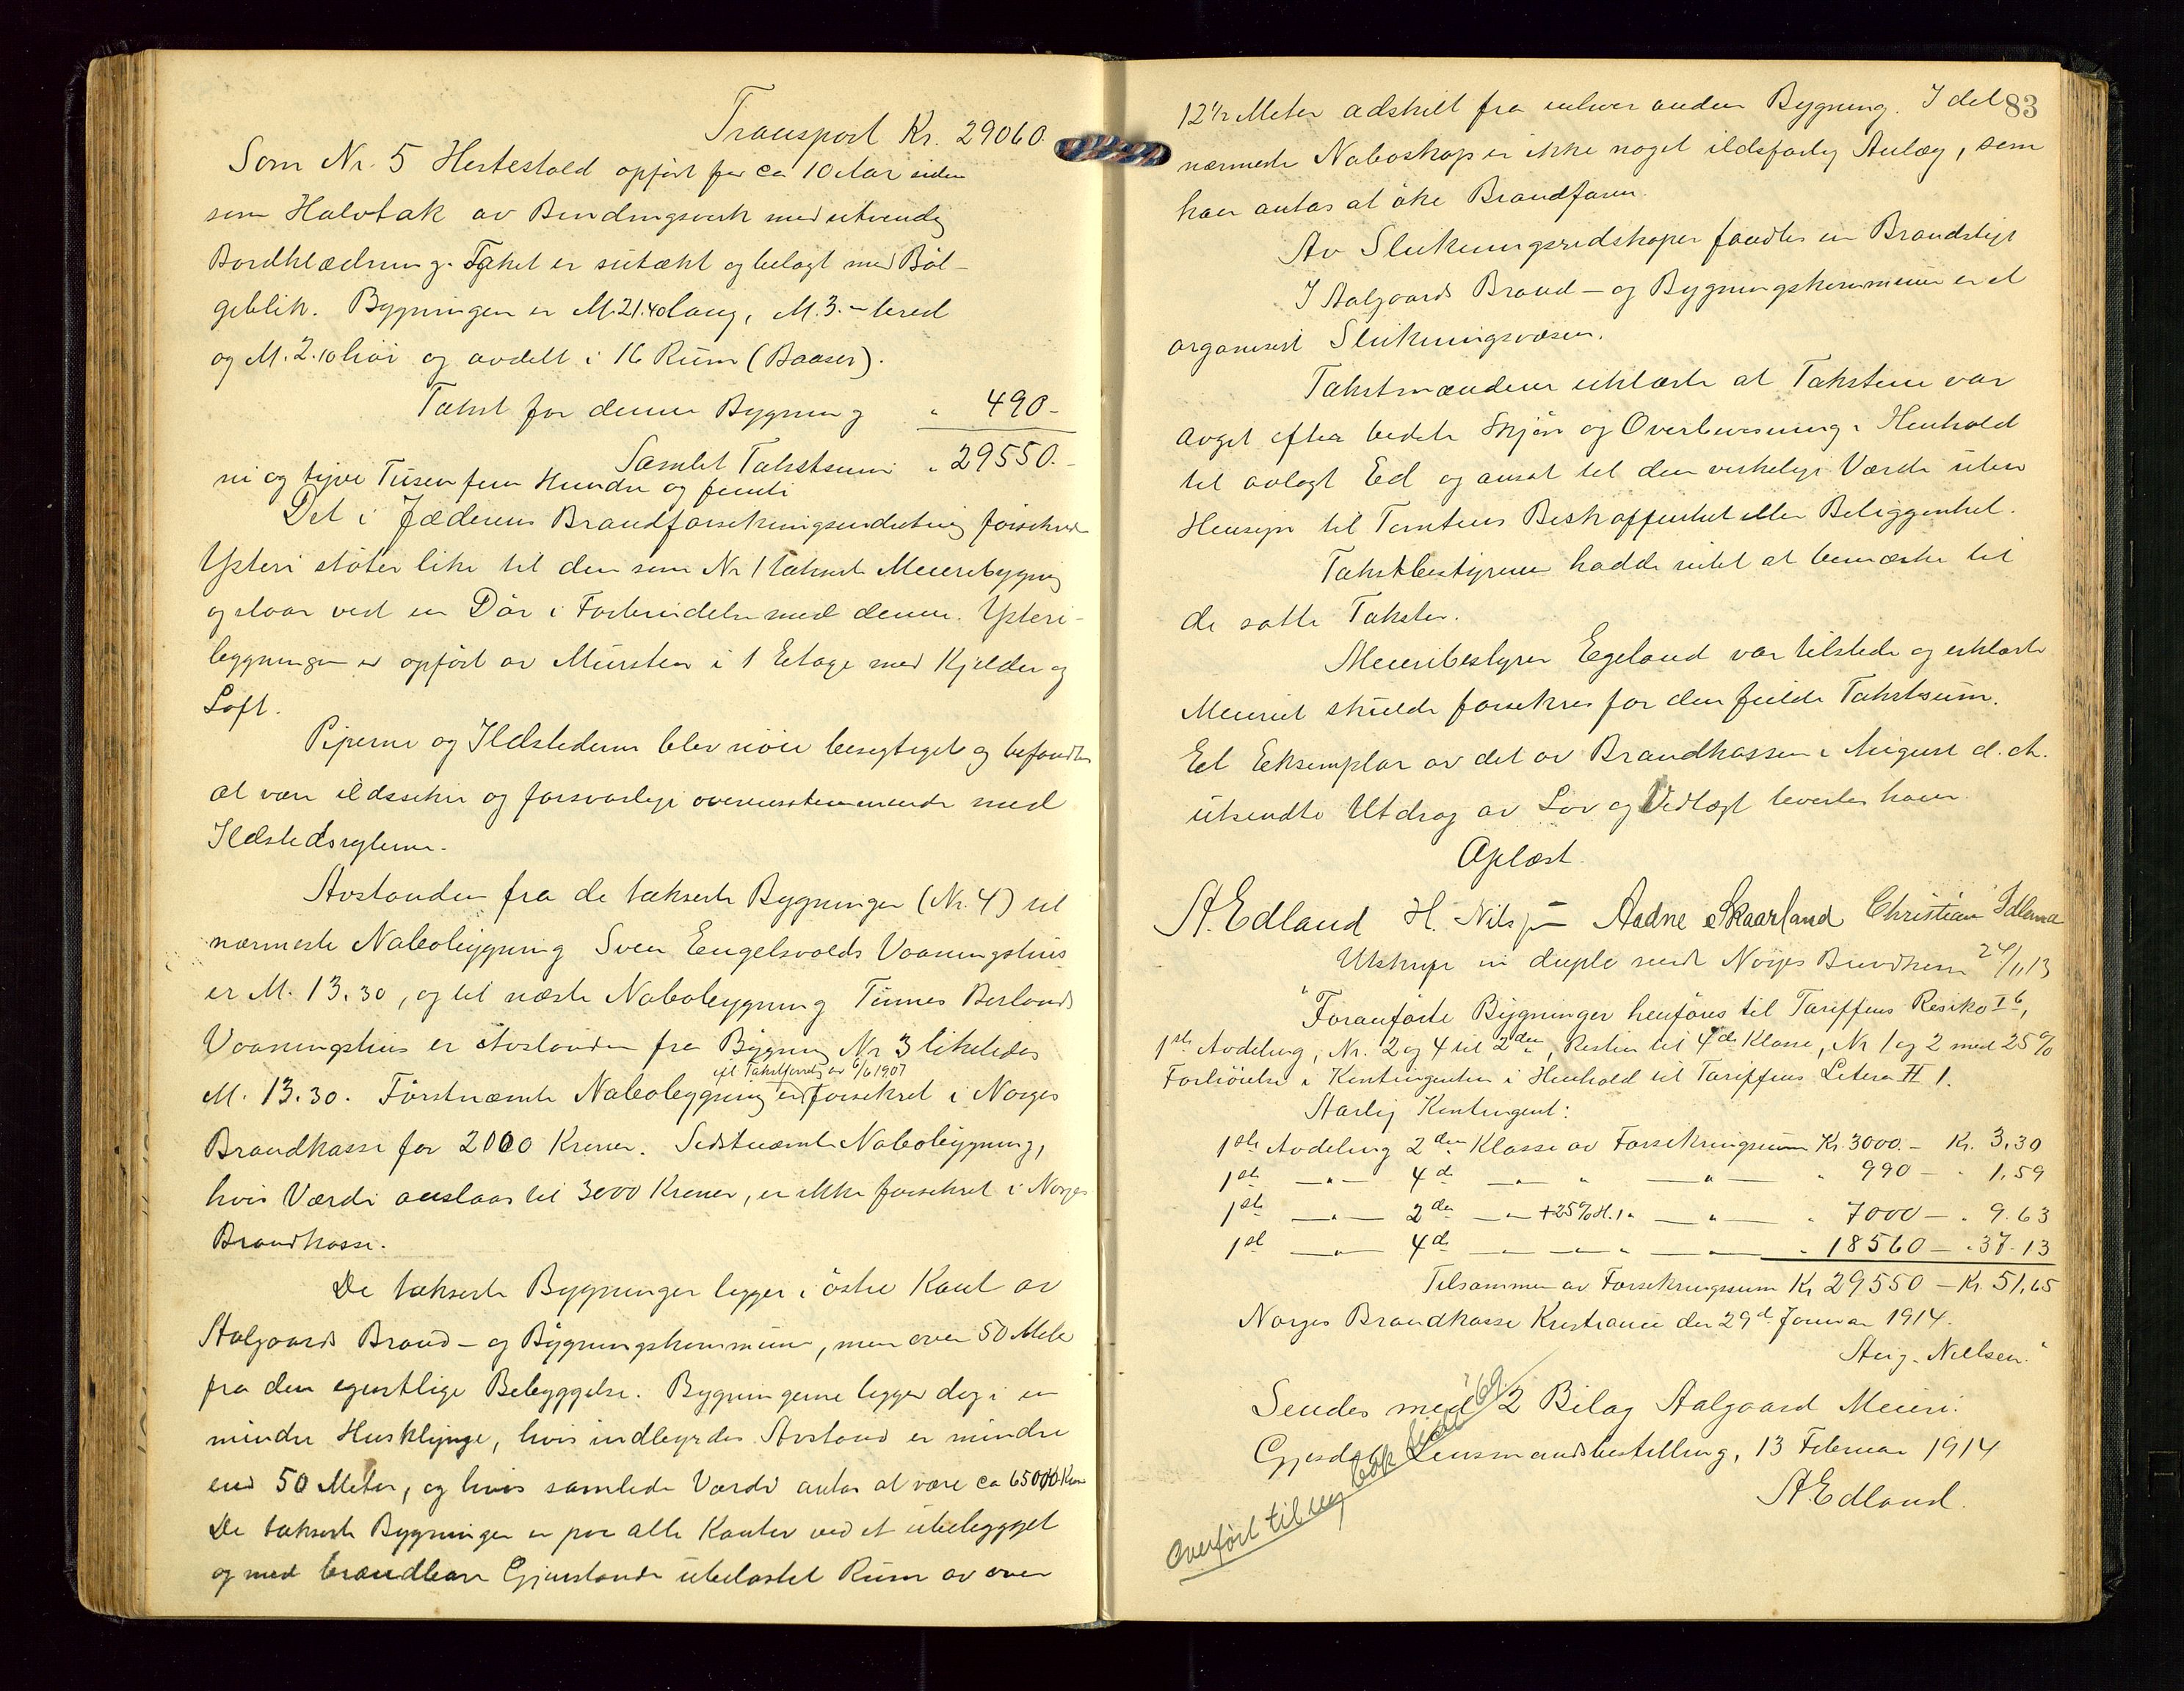 Transport Kr. 29060.
Som Nr. 5 Hestestald opført for ca 10 Aar siden
som Halvtak av Bindingsverk med utvendig
Bordklædning. Taket er sutækt og belagt med Böl-
geblik. Bygningen er M. 21.40 lang, M. 3.- bred
og M. 2.10 höi og avdelt i 16 Rum (Baaser).
Takst for denne Bygning " 490-
Samlet Takstsum " 29550.-
ni og tyve Tusen fem Hundre og femti
Det i Jæderens Brandforsikringsindretning forsikrede
Ysteri støter like til den som Nr 1 takserte Meieribygning
og staar ved en Dör i Forbindelse med denne. Ysteri-
bygningen er opført av Mursten i 1 Etage med Kjelder og
Loft.
Piperne og Ildstederne blev nöie besigtiget og befandtes
at være ildssikre og forsvarlige overensstemmende med
Ildstedsreglerne.
Avstanden fra de takserte Bygninger (Nr. 4) til
nærmeste Nabobygning Sven Engelsvolds Vaaningshus
er M. 13.30, og til næste Nabobygning Tønnes Berlands
Vaaningshus er Avstanden fra Bygning Nr 3 likeledes
ifl Takstforretn. av 6/6 1907
M. 13.30. Förstnæmte Nabobygning er forsikret i Norges
Brandkasse for 2000 Kroner. Sidstnæmte Nabobygning,
hvis Værdi anslaaes til 3000 Kroner, er ikke forsikret i Norges
Brandkasse.
De takserte Bygninger ligger i östre Kant av
Aalgaards Brand- og Bygningskommune, men over 50 Meter
fra den egentlige Bebyggelse. Bygningerne ligger dog i en
mindre Husklynge, hvis indbyrdes Avstand er mindre
end 50 Meter, og hvis samlede Værdi antas at være ca 65000 Kroner
De takserte Bygninger er paa alle Kanter ved et ubebygget
og med brændbare Gjenstande ubelastet Rum av over
83
12½ Meter adskilt fra enhver anden Bygning. I det
nærmeste Naboskap er ikke noget ildsfarlig Anlæg, som
kan antas at öke Brandfaren.
Av Slukningsredskaper fandtes en Brandstige
I Aalgaards Brand- og Bygningskommune er et
organisert Slukningsvæsen.
Takstmændene erklærte at Taksten var
avgit efter bedste Skjön og Overbevisning i Henhold
til avlagt Ed og ansat til den virkelige Værdi uten
Hensyn til Tomtens Beskaffenhet eller Beliggenhet.
Takstbestyreren hadde intet at bemærke til
de satte Takster.
Meieribestyrer Egeland var tilstede og erklærte
Meieriet skulde forsikres for den fulde Takstsum.
Et Eksemplar av det av Brandkassen i August d. A.
utsendte Utdrag av Lov og Vedtægt levertes ham.
Oplæst.
A. Edland H. Nilsen Aadne Skaarland Christian Idland
Utskrift in duplo sendt Norges Brandkasse 24/11 13
"Foranførte Bygninger henføres til Tariffens Resiko I b,
1ste Avdeling, Nr. 2 og 4 til 2den, Resten til 4de Klasse, Nr 1 og 2 med 25%
Forhöielse i Kontingenten i Henhold til Tariffens Litera H 1.
Aarlig Kontingent:
1ste Avdeling 2den Klasse av Forsikringssum Kr. 3000.- Kr. 3,30
1ste —"— 4de —"— " —"— " 990 — " 1,59
1ste —"— 2den —"— +25% H.1. " —"— " 7000 — " 9.63
1ste —"— 4de —"— —"— " —"— " 18560 — " 37.13
Tilsammen av Forsikringssum Kr 29550 — Kr. 51,65
Norges Brandkasse Kristiania den 29de Januar 1914.
Aug. Nielsen."
Sendes med 2 Bilag Aalgaard Meieri.
Gjesdal Lensmandsbestilling, 13 Februar 1914
A. Edland.
Overført til ny bok side 69.